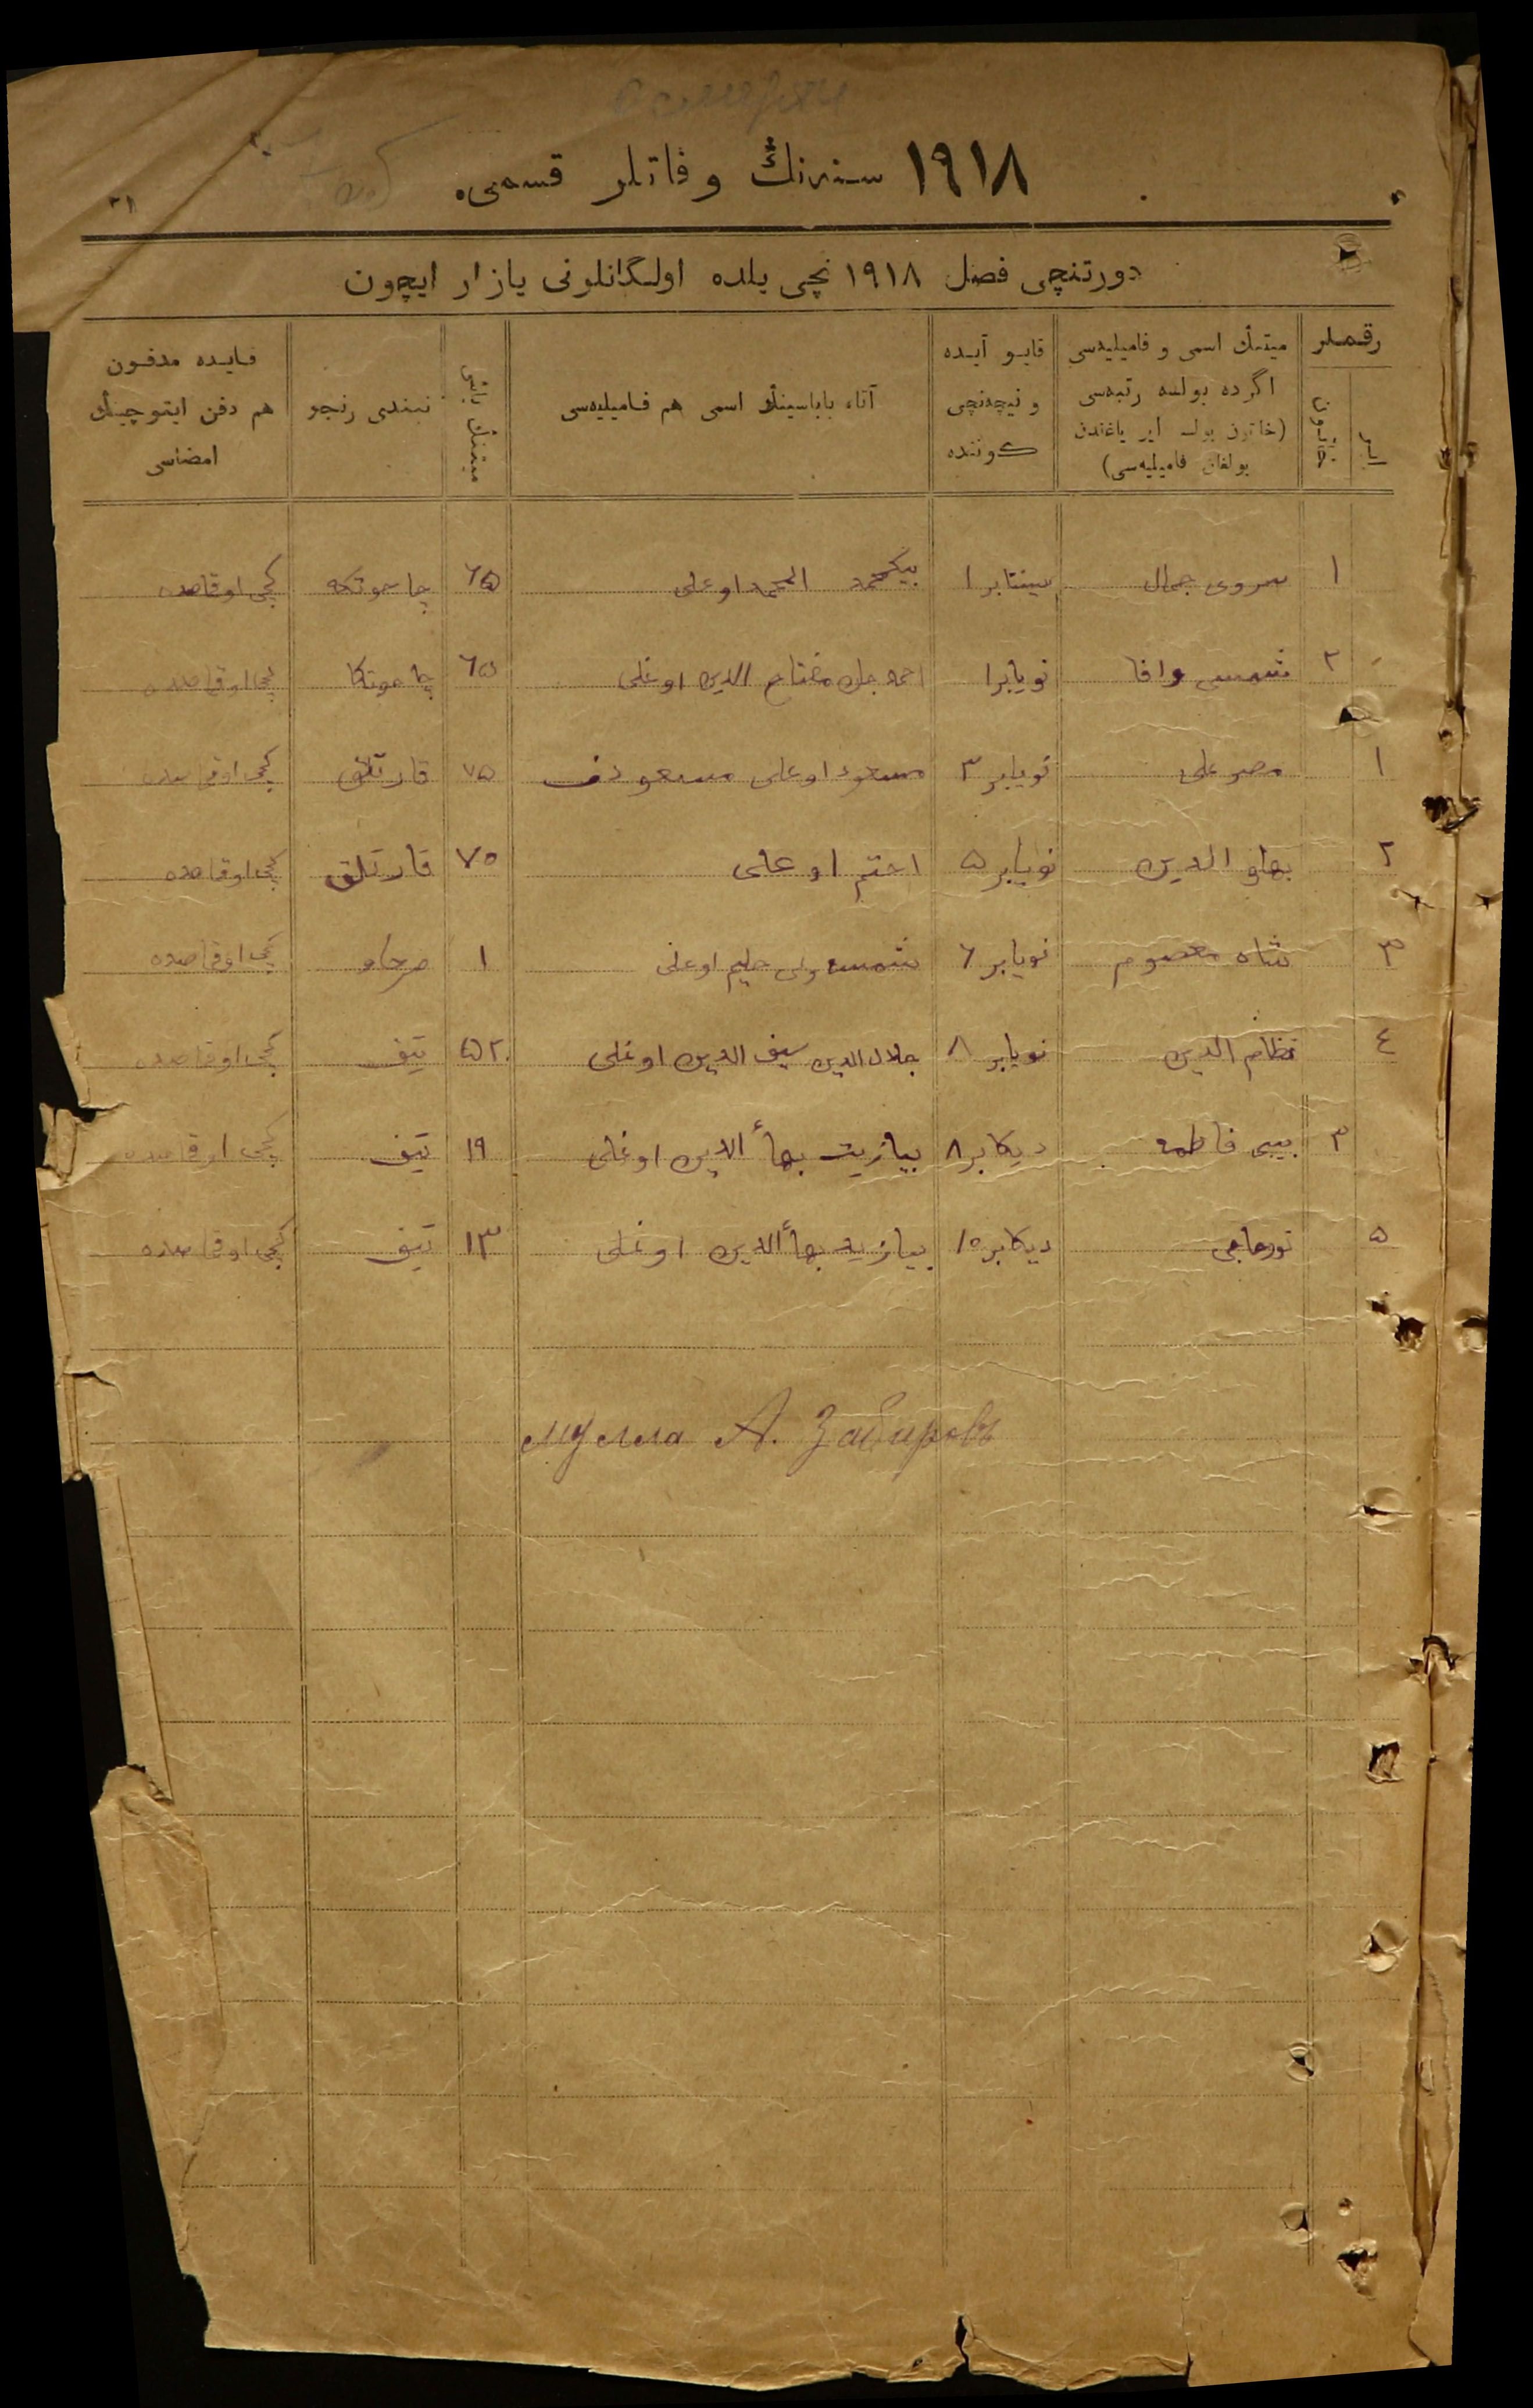 ١٩١٨ سنه‌نڭ وفاتلر قسمی.
دورتنچی فصل ١٩١٨ نچی یلده اولگانلرنی یازار ایچون
رقملر
ایر
خاتون
میتنڭ اسمی و فامیلیه‌سی
اگرده بولسه رتبه‌سی
(خاتون بولسه ایر یاغندن
بولغان فامیلیه‌سی)
قایو آیده
و نیچه‌نچی
كوننده
آتاء باباسینڭ اسمی هم فامیلیه‌سی
میتنڭ یاشی
نیندی رنجو
قایده مدفون
هم دفن ایتوچینڭ
امضاسی
١ سروی جمال سینتابر ١ بیكمحمد اوغلی ٦٥ چاحوتكه كچی اوقاصده
٢ شمسی وافا نویابر ١ احمدجان مفتاح الدین اوغلی ٦٥ چاحوتكا كچی اوقاصده
١ مصر علی نویابر ٣ مسعود اوغلی مسعودف ٧٥ قارتلق كچی اوقاصده
٢ بهاو الدین نویابر ٥ احتم اوغلی ٧٥ قارتلق كچی اوقاصده
٣ شاه معصوم نویابر ٦ شمس ولی حلیم اوغلی ١ كچی اوقاصده
٤ نظام الدین نویابر ٨ جلال الدین سیف الدین اوغلی ٥٢ تیف كچی اوقاصده
٣ بیبی فاطمه دیكابر ٨ بیازیت بهأ الدین اوغلی ١٩ تیف كچی اوقاصده
٥ نورحاجی دیكابر ١٥ بیازید بهأ الدین اوغلی ١٣ تیف كچی اوقاصده
мулла А. Забировъ